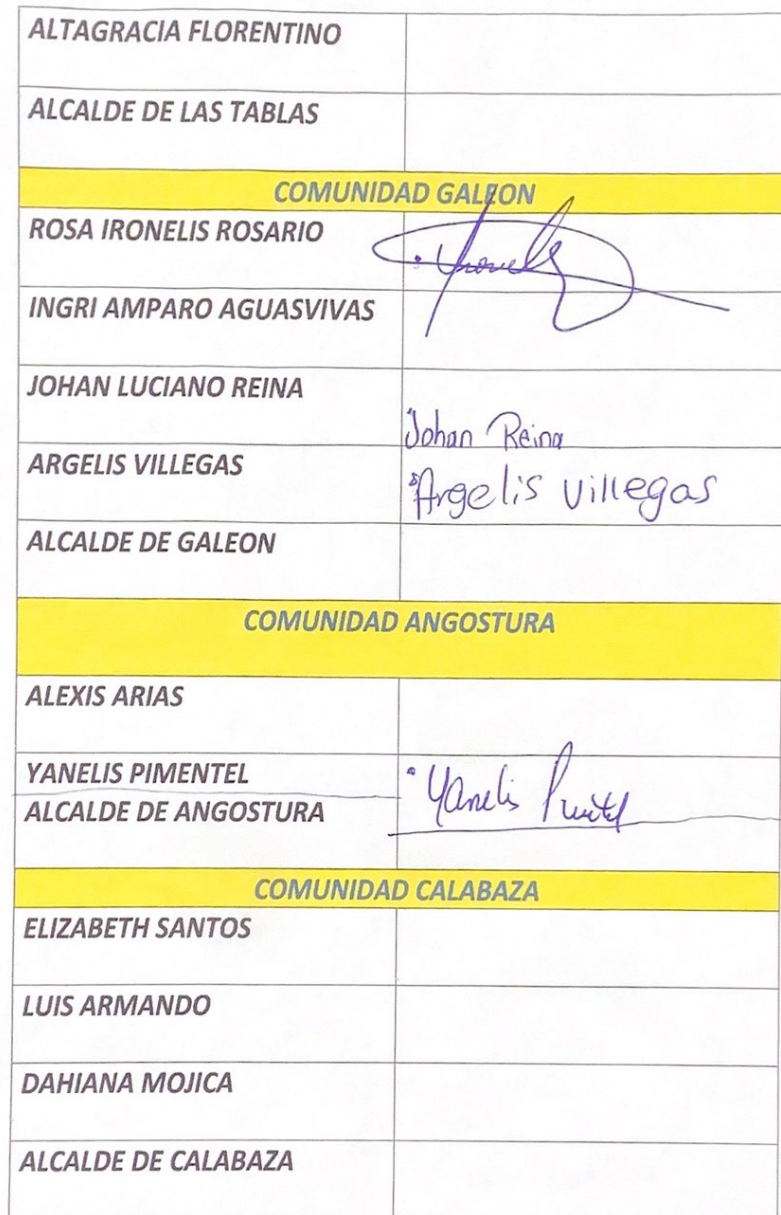 ALTAGRACIA FLORENTINO
ALCALDE DE LAS TABLAS
COMUNIDAD GALEON
ROSA IRONELIS ROSARIO
INGRI AMPARO AGUASVIVAS
JOHAN LUCIANO REINA
Johan Reina
ARGELIS VILLEGAS
Argelis villegas
ALCALDE DE GALEON
COMUNIDAD ANGOSTURA
ALEXIS ARIAS
YANELIS PIMENTEL
Yanelis
ALCALDE DE ANGOSTURA
COMUNIDAD CALABAZA
ELIZABETH SANTOS
LUIS ARMANDO
DAHIANA MOJICA
ALCALDE DE CALABAZA